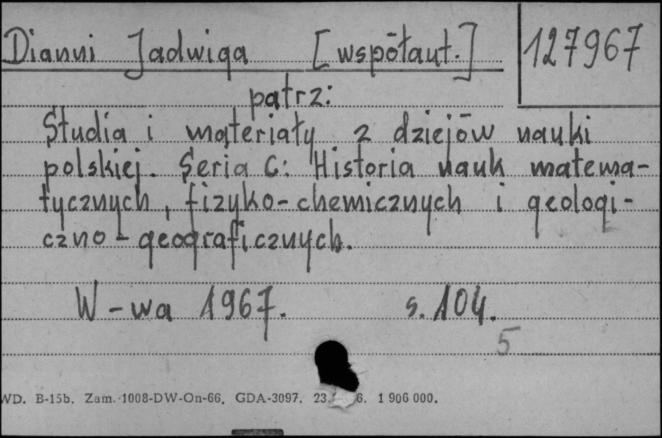 Dianni Jadwiga [współaut.] 127967
patrz:
Studia i materiały z dziejów nauki
polskiej. Seria C: Historia nauk matema-
tycznych, fizyko-chemicznych i geologi-
czno-geograficznych.
W-wa 1967. s. 104.
5
WD. B-15b. Zam. 1008-DW-On-66. GDA-3097. 23. 6. 1 906 000.